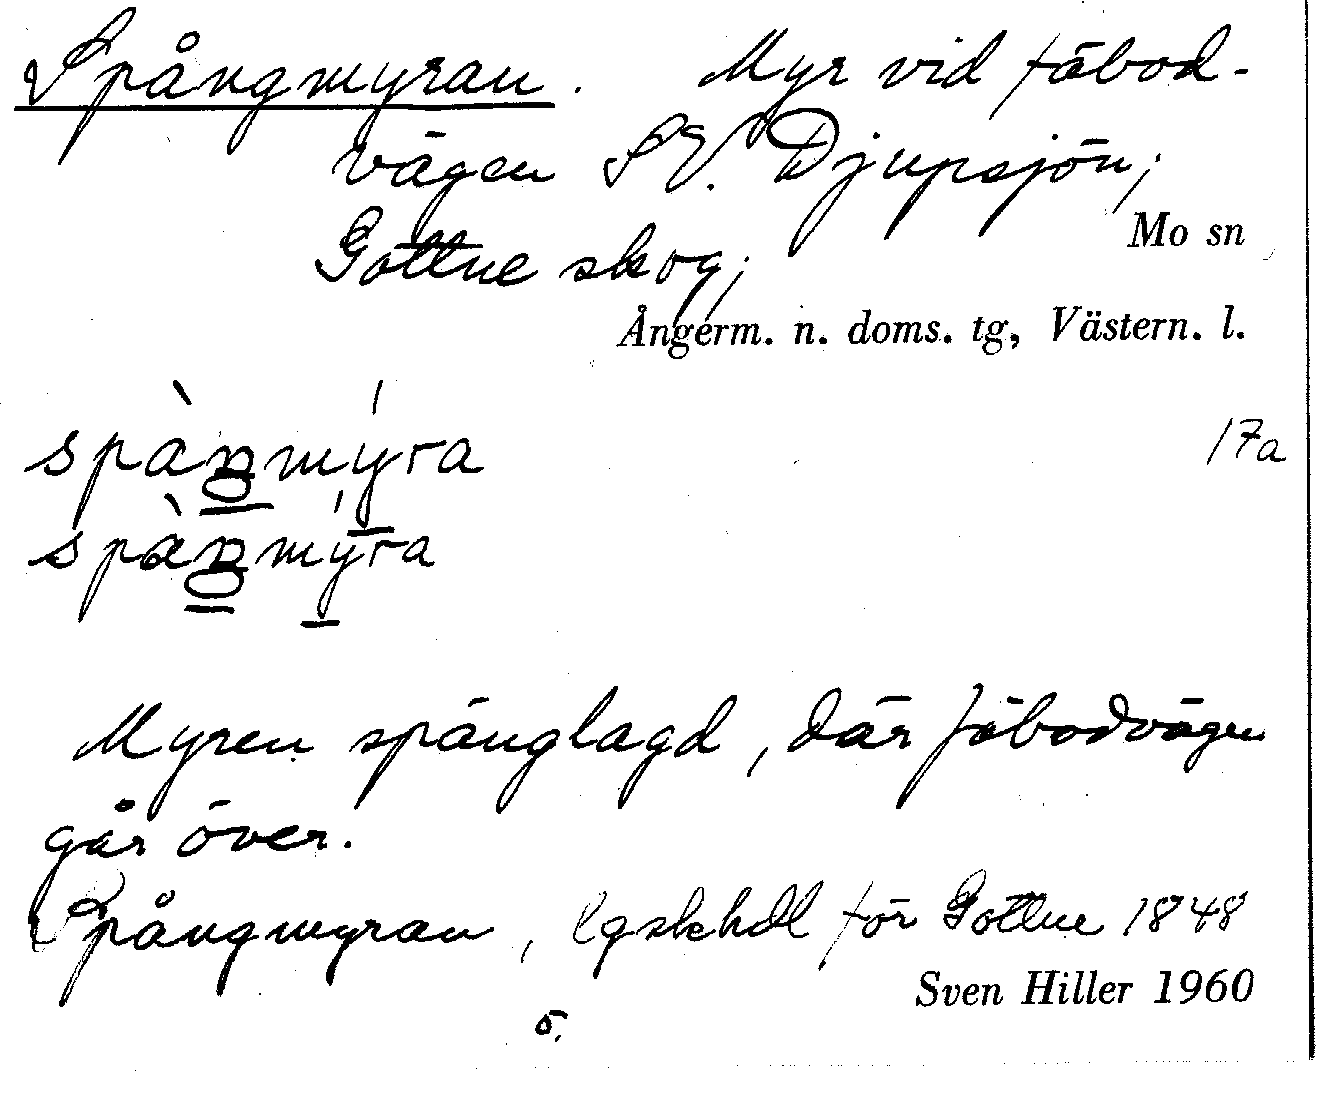 Spångmyran. Myr vid fäbod-
vägen SV. Djupsjön;
Mo sn
Gottne skog;
Ångerm. n. doms. tg, Västern. l.
spàŋmýra
17a
spàŋmýra
Myren spånglagd, där fäbodvägen
går över.
Spångmyran, lgskhdl för Gottne 1848
Sven Hiller 1960
ö.